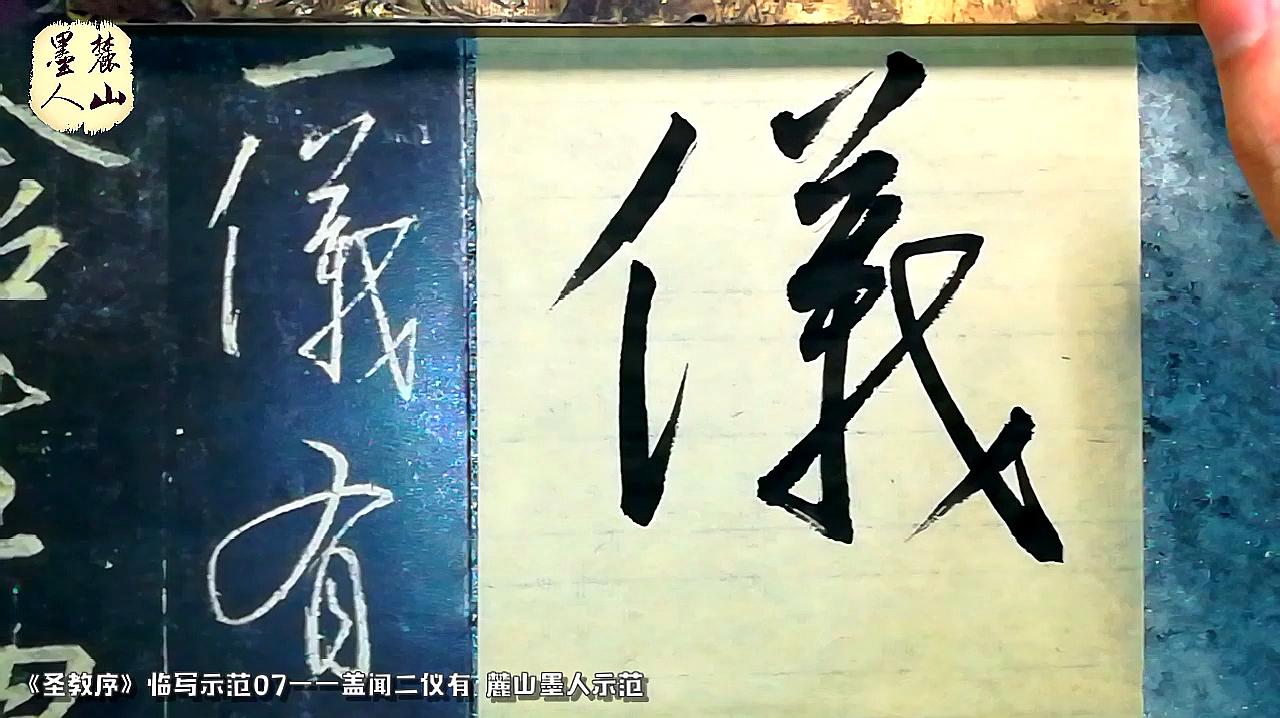 麓山
墨人
儀
儀
有
《圣教序》临写示范07——盖闻二仪有 麓山墨人示范